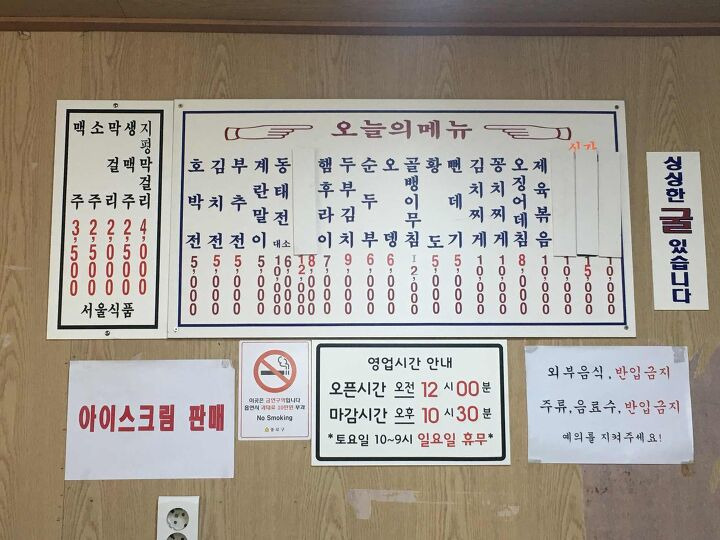 맥주 3,500
소주
막걸리 2,000
생맥주 2,500
지평막걸리 4,000
서울식품
오늘의메뉴
호박전 5,000
김치전 5,000
부추전 5,000
계란말이 5,000
동태전 대 소
햄후라이 7,000
두부김치 9,000
순두부 6,000
오뎅 6,000
골뱅이무침 12,000
황도 5,000
뻔데기 5,000
김치찌게 10,000
꽁치찌게 10,000
오징어데침 8,000
제육볶음 10,000
싱싱한 굴 있습니다
아이스크림 판매
이곳은 금연구역입니다
흡연시 과태료 10만원 부과
No Smoking
종로구
영업시간 안내
오픈시간 오전 12시00분
마감시간 오후 10시30분
*토요일 10~9시 일요일 휴무*
외부음식,반입금지
주류,음료수,반입금지
예의를 지켜주세요!